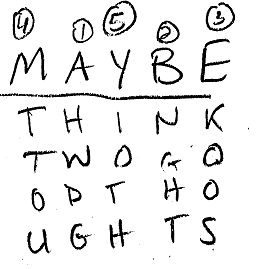 4 1 5 2 3
M A Y B E
T H I N K
T W O G O
O D T H O
U G H T S